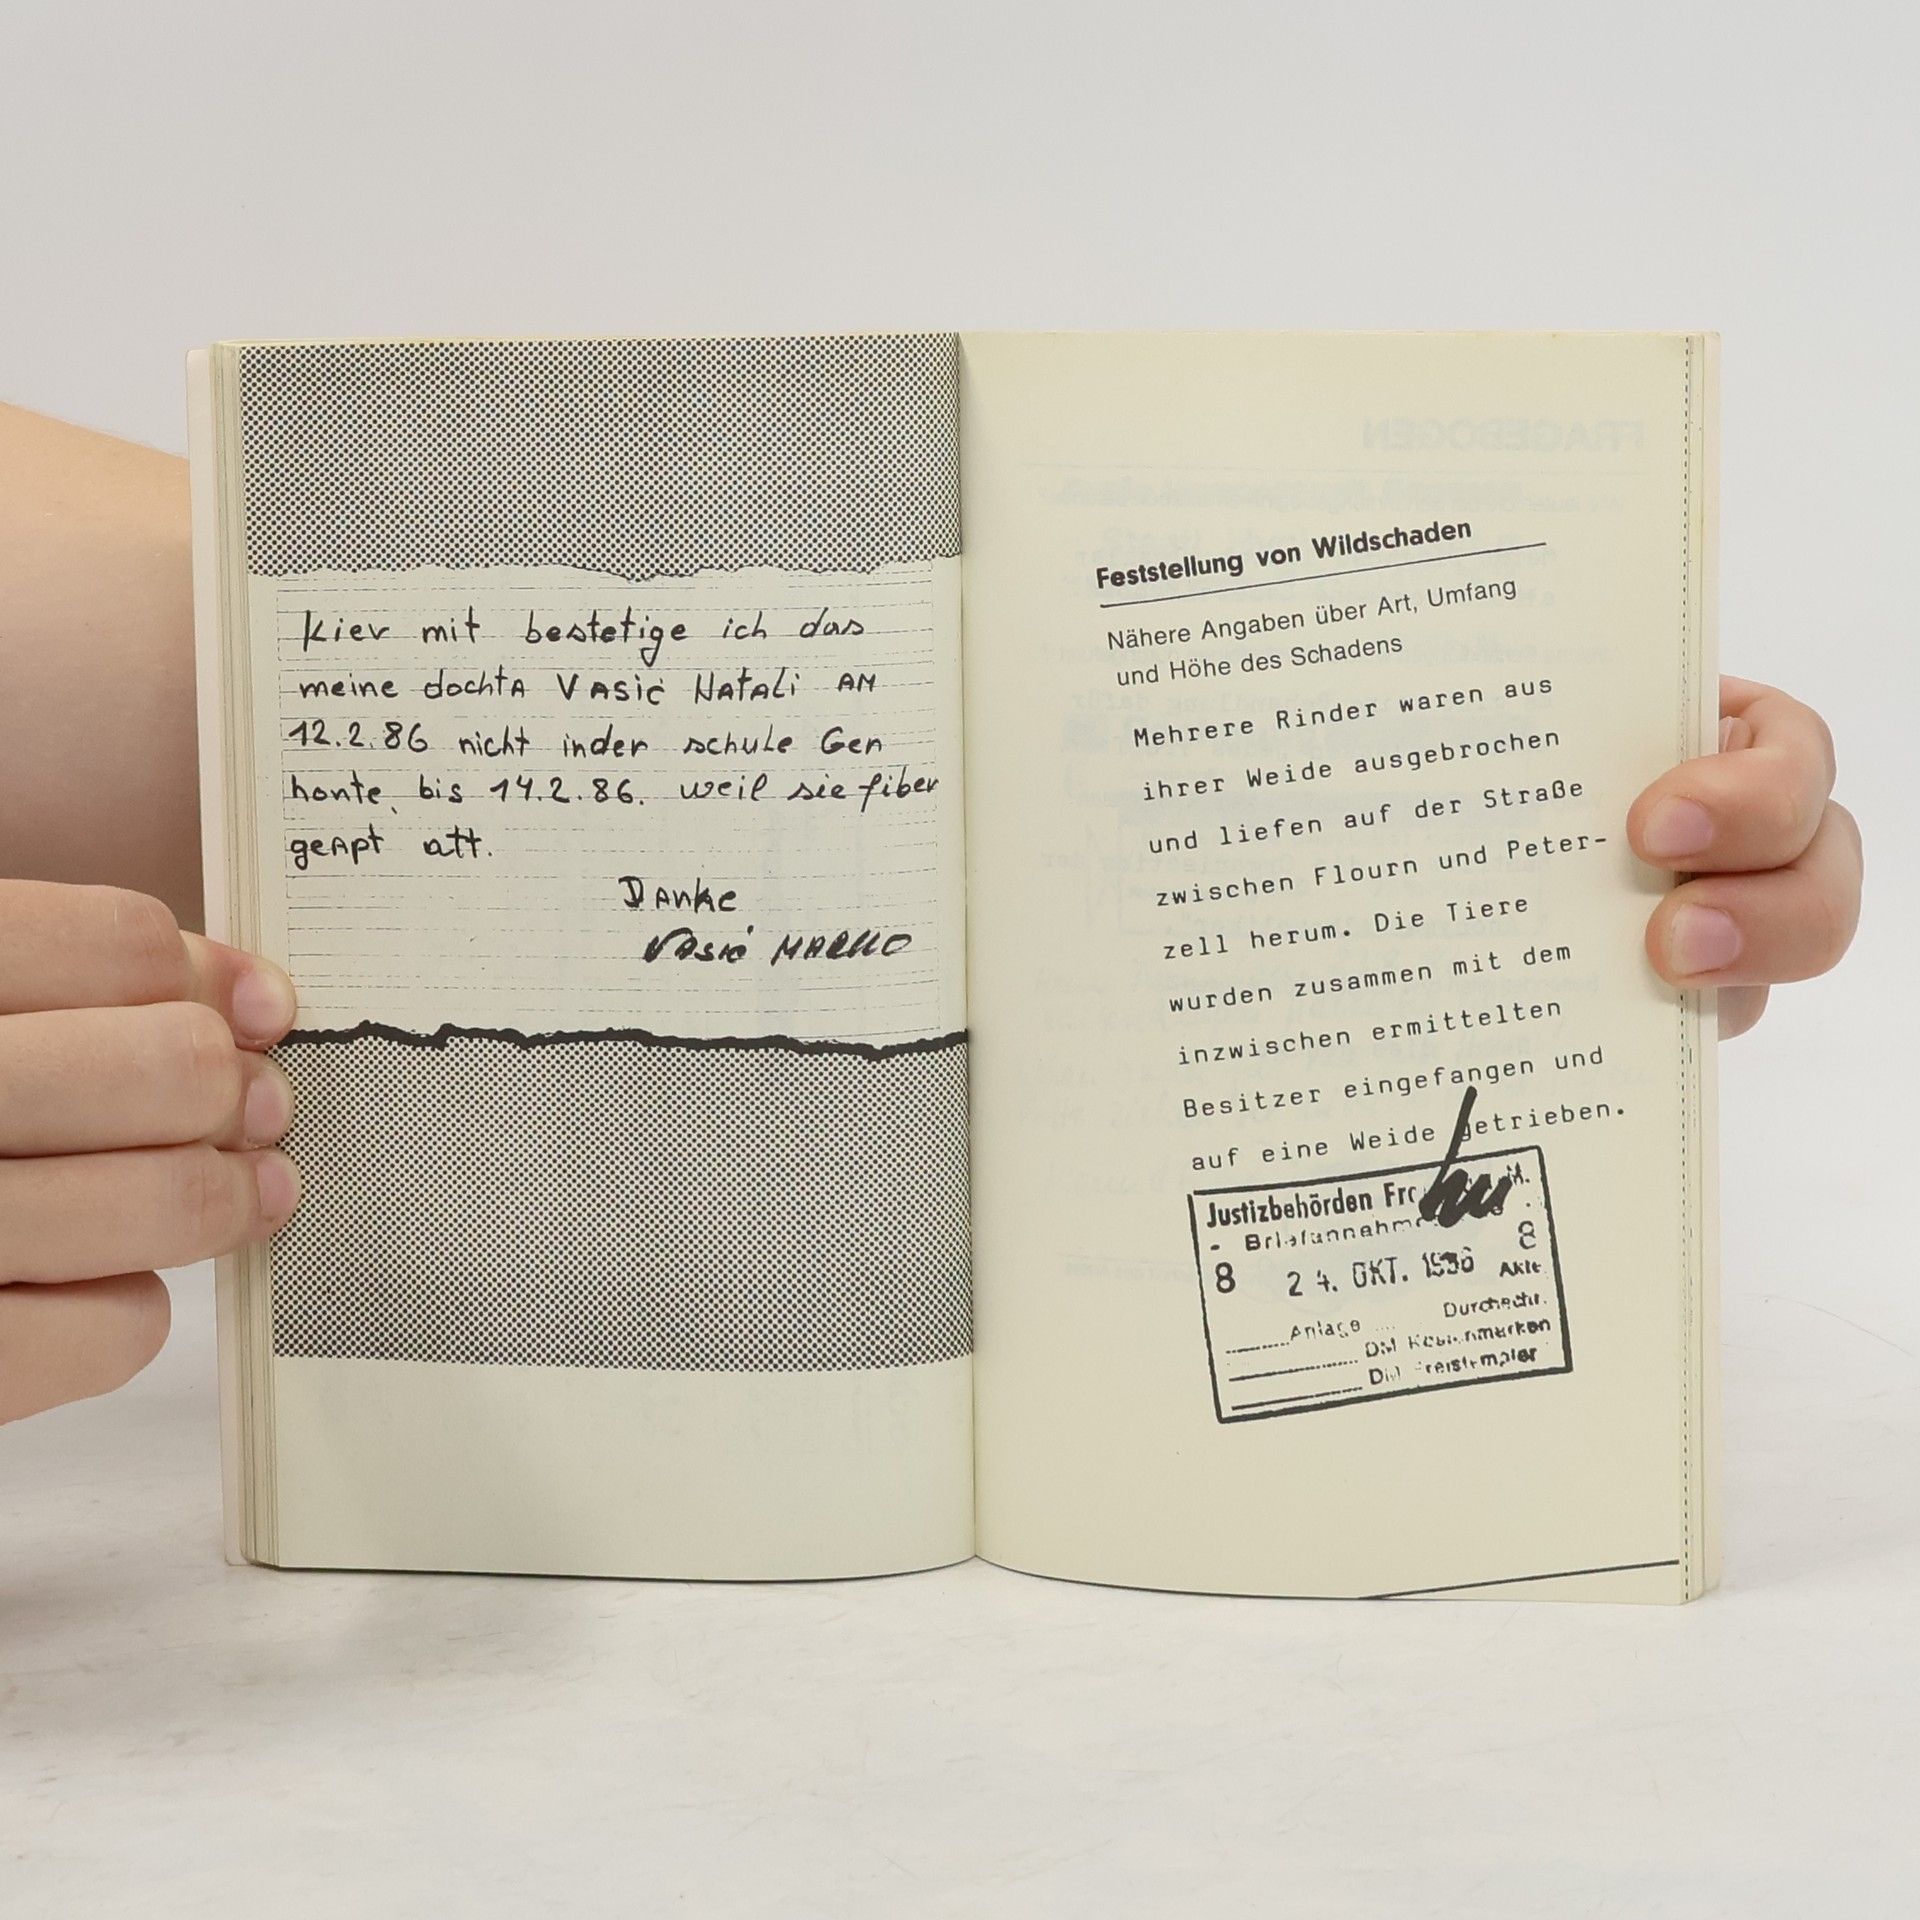 kier mit bestetige ich das
meine dochtA VASić NatALi AM
12.2.86 nicht inder schule Gen
honte, bis 14.2.86. weil sie fiber
geApt att.
DAnke
VAsić MARKO
Feststellung von Wildschaden
Nähere Angaben über Art, Umfang
und Höhe des Schadens
Mehrere Rinder waren aus
ihrer Weide ausgebrochen
und liefen auf der Straße
zwischen Flourn und Peter-
zell herum. Die Tiere
wurden zusammen mit dem
inzwischen ermittelten
Besitzer eingefangen und
auf eine Weide getrieben.
Justizbehörden
8 24. OKT. 8
Anlage Durchschr.
DM Kostenmarken
DM Freistempler
FRAGEBOGEN